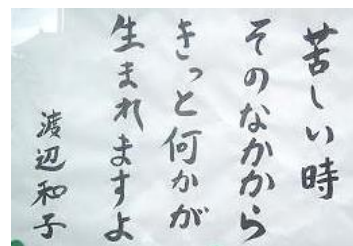 苦しい時
そのなかから
きっと何かが
生まれますよ
渡辺和子